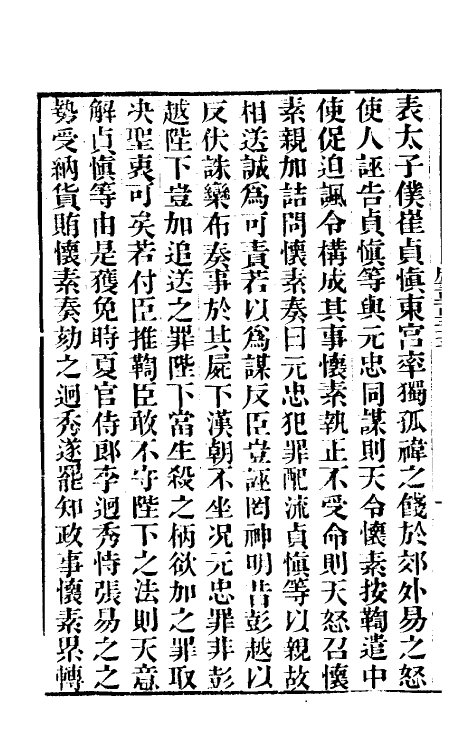 表太子僕崔貞慎東宮率獨孤禕之餞於郊外易之怒
使人誣告貞慎等與元忠同謀則天令懷素按鞫遣中
使促迫諷令構成其事懷素執正不受命則天怒召懷
素親加詰問懷素奏曰元忠犯罪配流貞慎等以親故
相送誠爲可責若以爲謀反臣豈誣罔神明昔彭越以
反伏誅欒布奏事於其屍下漢朝不坐况元忠罪非彭
越陛下豈加追送之罪陛下當生殺之柄欲加之罪取
决聖衷可矣若付臣推鞫臣敢不守陛下之法則天意
解貞慎等由是獲免時夏官侍郎李迥秀恃張易之之
勢受納貨賄懷素奏劾之迥秀遂罷知政事懷素累轉